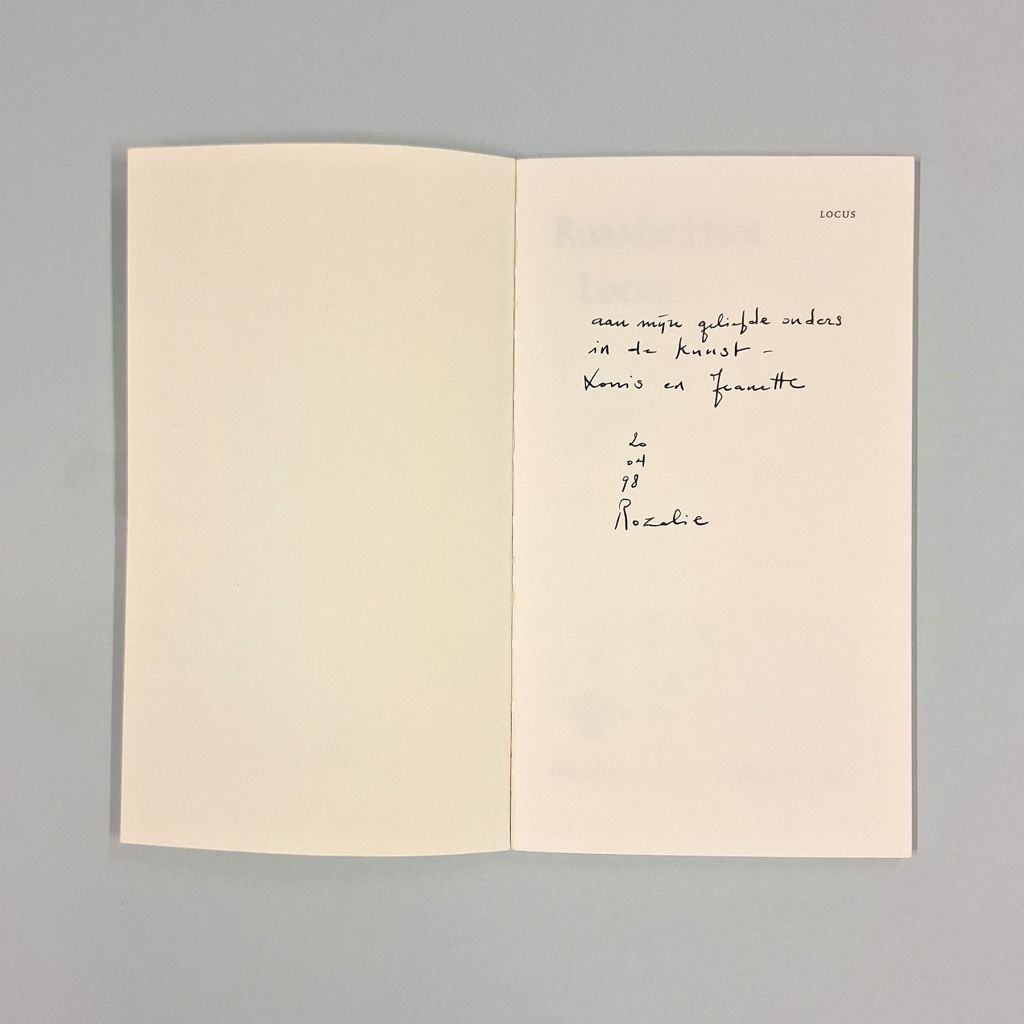 LOCUS
aan mijn geliefde ouders
in de kunst -
Louis en Jeanette
20
04
98
Rozalie